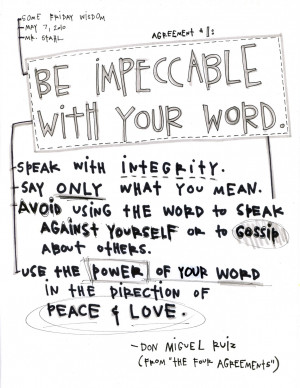 SOME FRIDAY WISDOM
MAY 7, 2010
MR. STARL
AGREEMENT #1:
BE IMPECCABLE
WITH YOUR WORD.
SPEAK WITH INTEGRITY.
SAY ONLY WHAT YOU MEAN.
AVOID USING THE WORD TO SPEAK
AGAINST YOURSELF OR TO GOSSIP
ABOUT OTHERS.
USE THE POWER OF YOUR WORD
IN THE DIRECTION OF
PEACE & LOVE.
-DON MIGUEL RUIZ
(FROM "THE FOUR AGREEMENTS")